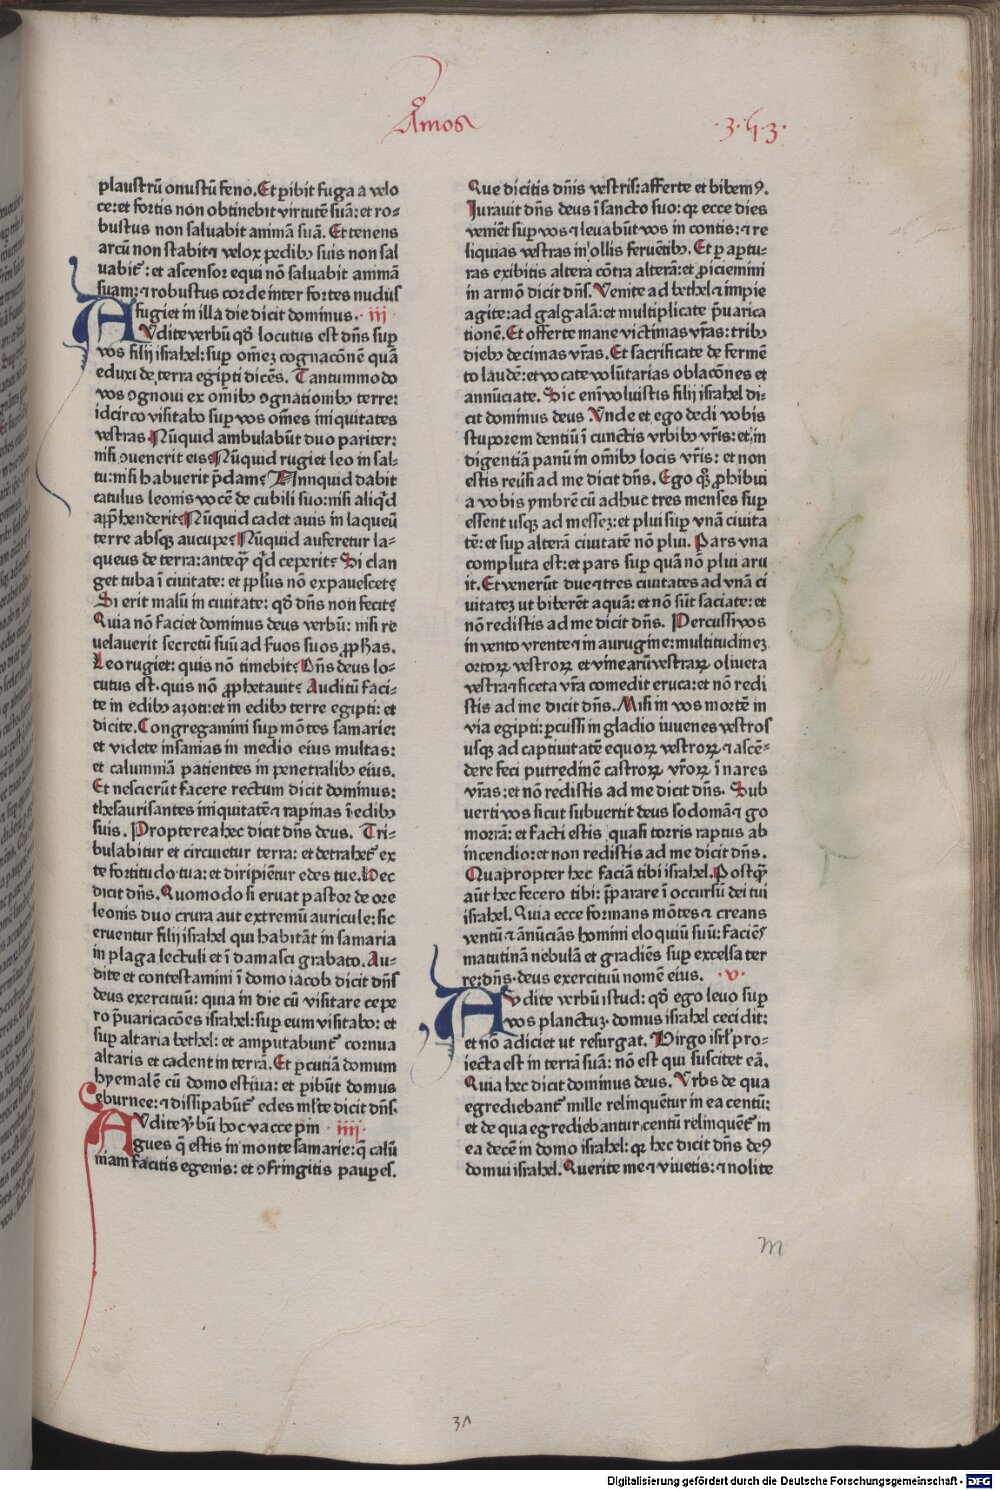 Amos
.3.4.3.
plaustrū onustū feno. Et ꝑibit fuga a velo
ce: et fortis non obtinebit virtutē suā: et ro⸗
bustus non saluabit animā suā. Et tenens
arcū non stabit ⁊ velox pedibꝰ suis non sal
uabit᷑: et ascensor equi nō saluabit animā
suam: ⁊ robustus corde inter fortes nudus
fugiet in illa die dicit dominus. iij
AUdite verbū qḋ locutus est dn̄s suꝑ
vos filij israhel: suꝑ om̄eꝫ cognacōnē quā
eduxi de terra egipti dicēs. Tantummodo
vos ꝯgnoui ex om̄ibꝰ ꝯgnationibꝰ terre:
idcirco visitabo suꝑ vos om̄es iniquitates
vestras. Nūquid ambulabūt duo pariter:
nisi ꝯuenerit eis? Nūquid rugiet leo in sal⸗
tu: nisi habuerit p̄dam? Nnnquid dabit
catulus leonis vocē de cubili suo: nisi aliqͥd
apꝑhenderit? Nūquid cadet auis in laqueū
terre absqꝫ aucupe? Nūquid auferetur la⸗
queus de terra: anteqꝫ̄ qͥd ceperit? Si clan
get tuba ī ciuitate: et ꝓplus nō expauescet?
Si erit malū in ciuitate: qḋ dn̄s non fecit?
Quia nō faciet dominus deus verbū: nisi re
uelauerit secretū suū ad ſuos suos ꝓph̄as.
Leo rugiet: quis nō timebit? Dn̄s deus lo⸗
cutus est. quis nō ꝓphetauit? Auditū faci⸗
te in edibꝰ azoti: et in edibꝰ terre egipti: et
dicite. Congregamini suꝑ mōtes samarie:
et videte insanias in medio eius multas:
et calumniā patientes in penetralibꝰ eius.
Et nescierūt facere rectum dicit dominus:
thesaurisantes iniquitatē ⁊ rapinas ī edibꝰ
suis. Propterea hec dicit dn̄s deus. Tri⸗
bulabitur et circuietur terra: et detrahet᷑ ex
te fortitudo tua: et diripiētur edes tue. Hec
dicit dn̄s. Quomodo si eruat pastor de ore
leonis duo crura aut extremū auricule: sic
eruentur filij israhel qui habitāt in samaria
in plaga lectuli et ī damasci grabato. Au⸗
dite et contestamini ī domo iacob dicit dn̄s
deus exercituū: quia in die cū visitare cepe
ro p̄uaricacōes israhel: suꝑ eum visitabo: et
suꝑ altaria bethel: et amputabunt᷑ cornua
altaris et cadent in terrā. Et ꝑcutiā domum
hyemalē cū domo estiua: et ꝑibūt domus
eburnee: ⁊ dissipabūt᷑ edes ml̄te dicit dn̄s.
AUdite v̄bū hoc vacce pin iiij.
gues q̄ estis in monte samarie: q̄ calū
niam facitis egenis: et ꝯfringitis pauꝑes.
Que dicitis dn̄is vestris: afferte et bibemꝰ.
Iurauit dn̄s deus ī sancto suo: qꝛ ecce dies
veniēt suꝑ vos ⁊ leuabūt vos in contis: ⁊ re
liquias vestras in ollis feruētibꝰ. Et ꝑ aꝑtu⸗
ras exibitis altera cōtra alterā: et ꝓiciemini
in armō dicit dn̄s. Venite ad bethel ⁊ impie
agite: ad galgalā: et multiplicate p̄uarica
tionē. Et offerte mane victimas vr̄as: tribꝰ
diebꝰ decimas vr̄as. Et sacrificate de fermē
to laudē: et vocate volūtarias oblacōnes et
annūciate. Sic eni᷑ voluistis filij israhel di⸗
cit dominus deus Unde et ego dedi vobis
stuporem dentiū ī cunctis vrbibꝰ vr̄is: et in
digentiā panū in om̄ibꝰ locis vr̄is: et non
estis reūsi ad me dicit dn̄s. Ego qꝫ̄ ꝓhibui
a vobis ymbrē cū adhuc tres menses suꝑ
essent usqꝫ ad messeꝫ: et plui suꝑ vnā ciuita
tē: et suꝑ alterā ciuitatē nō plui. Pars vna
compluta est: et pars suꝑ quā nō plui aru
it. Et venerūt due ⁊ tres ciuitates ad vnā ci
uitateꝫ ut biberēt aquā: et nō sūt saciate: et
nō redistis ad me dicit dn̄s. Percussi vos
in vento vrente ⁊ in aurugine: multitudineꝫ
ortoꝝ vestroꝝ et vinearū vestraꝝ oliueta
vestra ⁊ ficeta vr̄a comedit eruca: et nō redi
stis ad me dicit dn̄s. Misi in vos mortē in
via egipti: ꝑcussi in gladio iuuenes vestros
usqꝫ ad captiuitatē equoꝝ vestroꝝ ⁊ ascē⸗
dere feci putredinē castroꝝ vr̄oꝝ ī nares
vr̄as: et nō redistis ad me dicit dn̄s. Sub
uerti vos sicut subuertit deus sodomā ⁊ go
morrā: et facti estis quasi torris raptus ab
incendio: et non redistis ad me dicit dn̄s.
Quapropter hec faciā tibi israhel. Postqꝫ̄
aūt hec fecero tibi: p̄parare ī occursū dei tui
israhel. Quia ecce formans mōtes ⁊ creans
ventū ⁊ ānūciās homini eloquiū suū: faciēs
matutinā nebulā et gradiēs suꝑ excelsa ter
re: dn̄s. deus exercituū nomē eius. .v.
AUdite verbū istud: qḋ ego leuo suꝑ
vos planctuꝫ. domus israhel cecidit:
et nō adiciet ut resurgat. Virgo isrl̄ pro⸗
iecta est in terrā suā: nō est qui suscitet eā.
Quia hec dicit dominus deus. Urbs de qua
egrediebant᷑ mille relinquētur in ea centū:
et de qua egrediebantur centū relinquēt᷑ in
ea decē in domo israhel: qꝛ hec dicit dn̄s deꝰ
domui israhel. Querite me ⁊ viuetis: ⁊ nolite
m
Digitalisierung gefördert durch die Deutsche Forschungsgemeinschaft - DFG